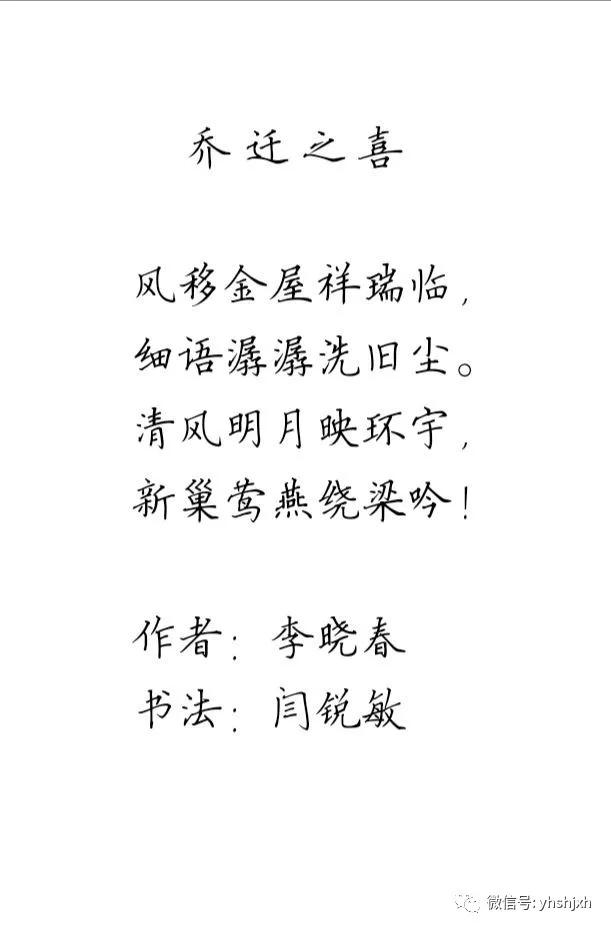 乔迁之喜
风移金屋祥瑞临，
细语潺潺洗旧尘。
清风明月映环宇，
新巢莺燕绕梁吟！
作者：李晓春
书法：闫锐敏
微信号: yhshjxh